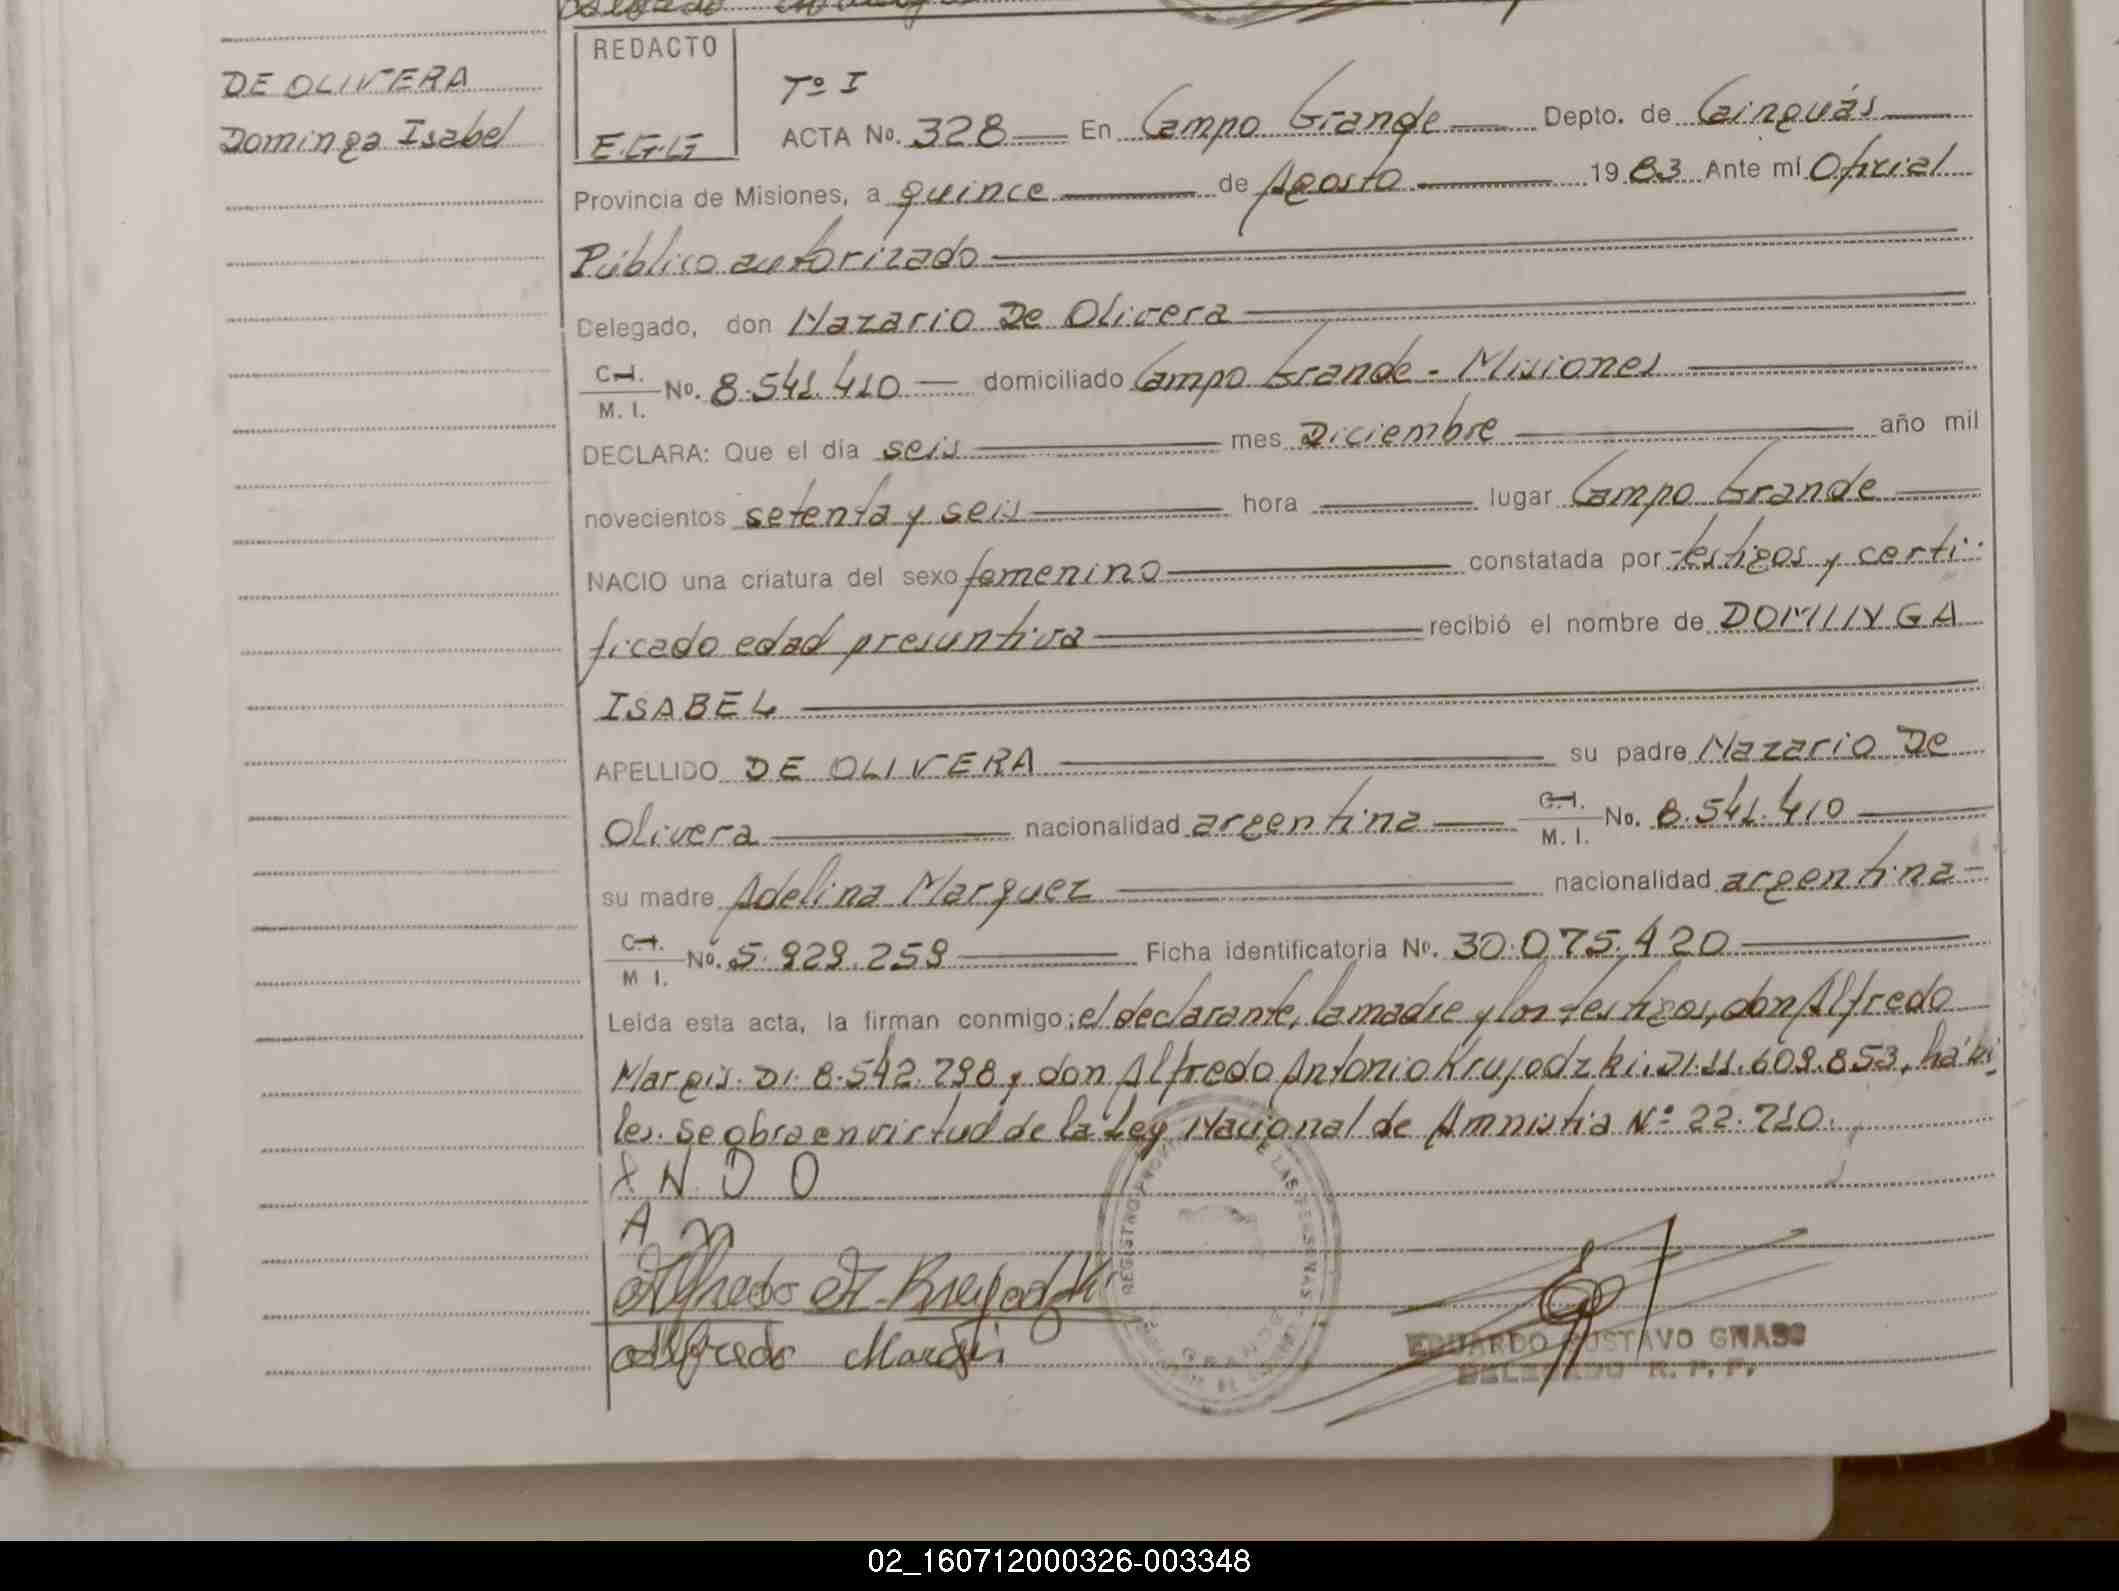 DE OLIVERA
Dominga Isabel
REDACTO
E.G.G
Tº I
ACTA No. 328 En Campo Grande Depto. de Cainguás
Provincia de Misiones, a quince de Agosto 1983 Ante mí Oficial
Público autorizado
Delegado, don Nazario De Olivera
C.I. / M. I. No. 8.541.410 domiciliado Campo Grande - Misiones
DECLARA: Que el día seis mes Diciembre año mil
novecientos setenta y seis hora lugar Campo Grande
NACIO una criatura del sexo femenino constatada por testigos y certi-
ficado edad presuntiva recibió el nombre de DOMINGA
ISABEL
APELLIDO DE OLIVERA su padre Nazario De
Olivera nacionalidad argentina C.I. / M. I. No. 8.541.410
su madre Adelina Marquez nacionalidad argentina
C.I. / M I. No. 5.929.259 Ficha identificatoria No. 30.075.420
Leída esta acta, la firman conmigo; el declarante, la madre y los testigos, don Alfredo
Margis. DI. 8.542.798 y don Alfredo Antonio Krujodzki. DI. 11.609.853, hábi-
les. Se obra en virtud de la Ley Nacional de Amnistia Nº 22.710.
N D O
A M
Alfredo A. Krujodzki
Alfredo Margis
REGISTRO DE LAS PERSONAS
EDUARDO GUSTAVO GNASS
DELEGADO R. P. P.
02_160712000326-003348